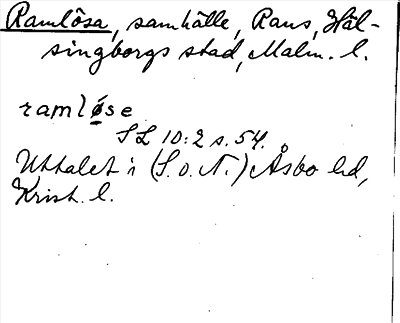 Ramlösa, samhälle, Raus, Häl-
singborgs stad, Malm. l.
ramløse
SL 10:2 s. 54.
Uttalet i (S. o. N.) Åsbo hd,
Krist. l.